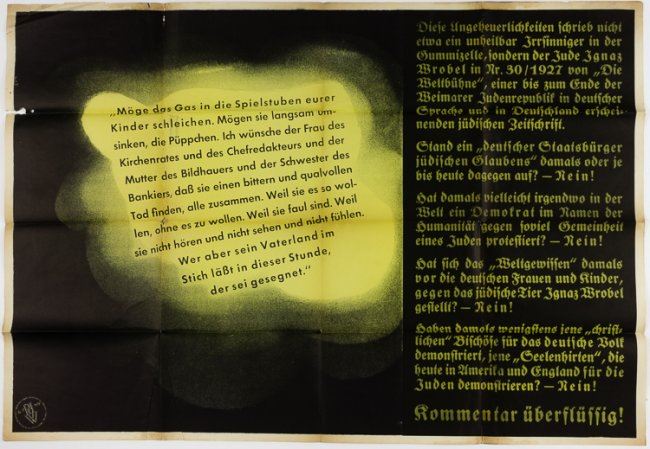 „Möge das Gas in die Spielstuben eurer
Kinder schleichen. Mögen sie langsam um-
sinken, die Püppchen. Ich wünsche der Frau des
Kirchenrates und des Chefredakteurs und der
Mutter des Bildhauers und der Schwester des
Bankiers, daß sie einen bittern und qualvollen
Tod finden, alle zusammen. Weil sie es so wol-
len, ohne es zu wollen. Weil sie faul sind. Weil
sie nicht hören und nicht sehen und nicht fühlen.
Wer aber sein Vaterland im
Stich läßt in dieser Stunde,
der sei gesegnet.“
Diese Ungeheuerlichkeiten schrieb nicht
etwa ein unheilbar Irrsinniger in der
Gummizelle, sondern der Jude Ignaz
Wrobel in Nr. 30/1927 von „Die
Weltbühne“, einer bis zum Ende der
Weimarer Judenrepublik in deutscher
Sprache und in Deutschland erschei-
nenden jüdischen Zeitschrift.
Stand ein „deutscher Staatsbürger
jüdischen Glaubens“ damals oder je
bis heute dagegen auf? — Nein!
Hat damals vielleicht irgendwo in der
Welt ein Demokrat im Namen der
Humanität gegen soviel Gemeinheit
eines Juden protestiert? — Nein!
Hat sich das „Weltgewissen“ damals
vor die deutschen Frauen und Kinder,
gegen das jüdische Tier Ignaz Wrobel
gestellt? — Nein!
Haben damals wenigstens jene „christ-
lichen“ Bischöfe für das deutsche Volk
demonstriert, jene „Seelenhirten“, die
heute in Amerika und England für die
Juden demonstrieren? — Nein!
Kommentar überflüssig!